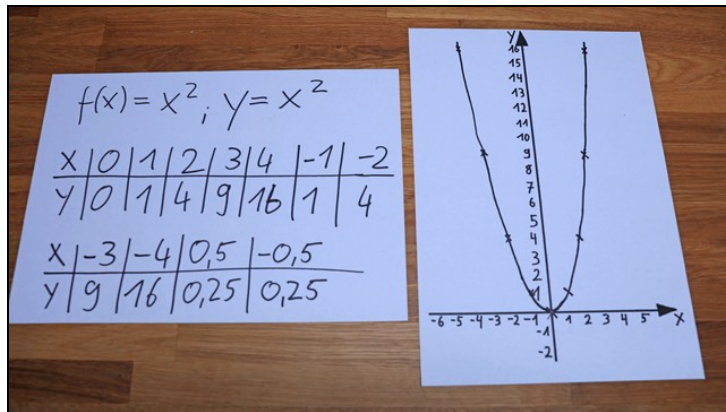 f(x) = x²; y = x²
X | 0 | 1 | 2 | 3 | 4 | -1 | -2
Y | 0 | 1 | 4 | 9 | 16 | 1 | 4
X | -3 | -4 | 0,5 | -0,5
Y | 9 | 16 | 0,25 | 0,25
Y
16
15
14
13
12
11
10
9
8
7
6
5
4
3
2
1
-6 -5 -4 -3 -2 -1 1 2 3 4 5 X
-1
-2